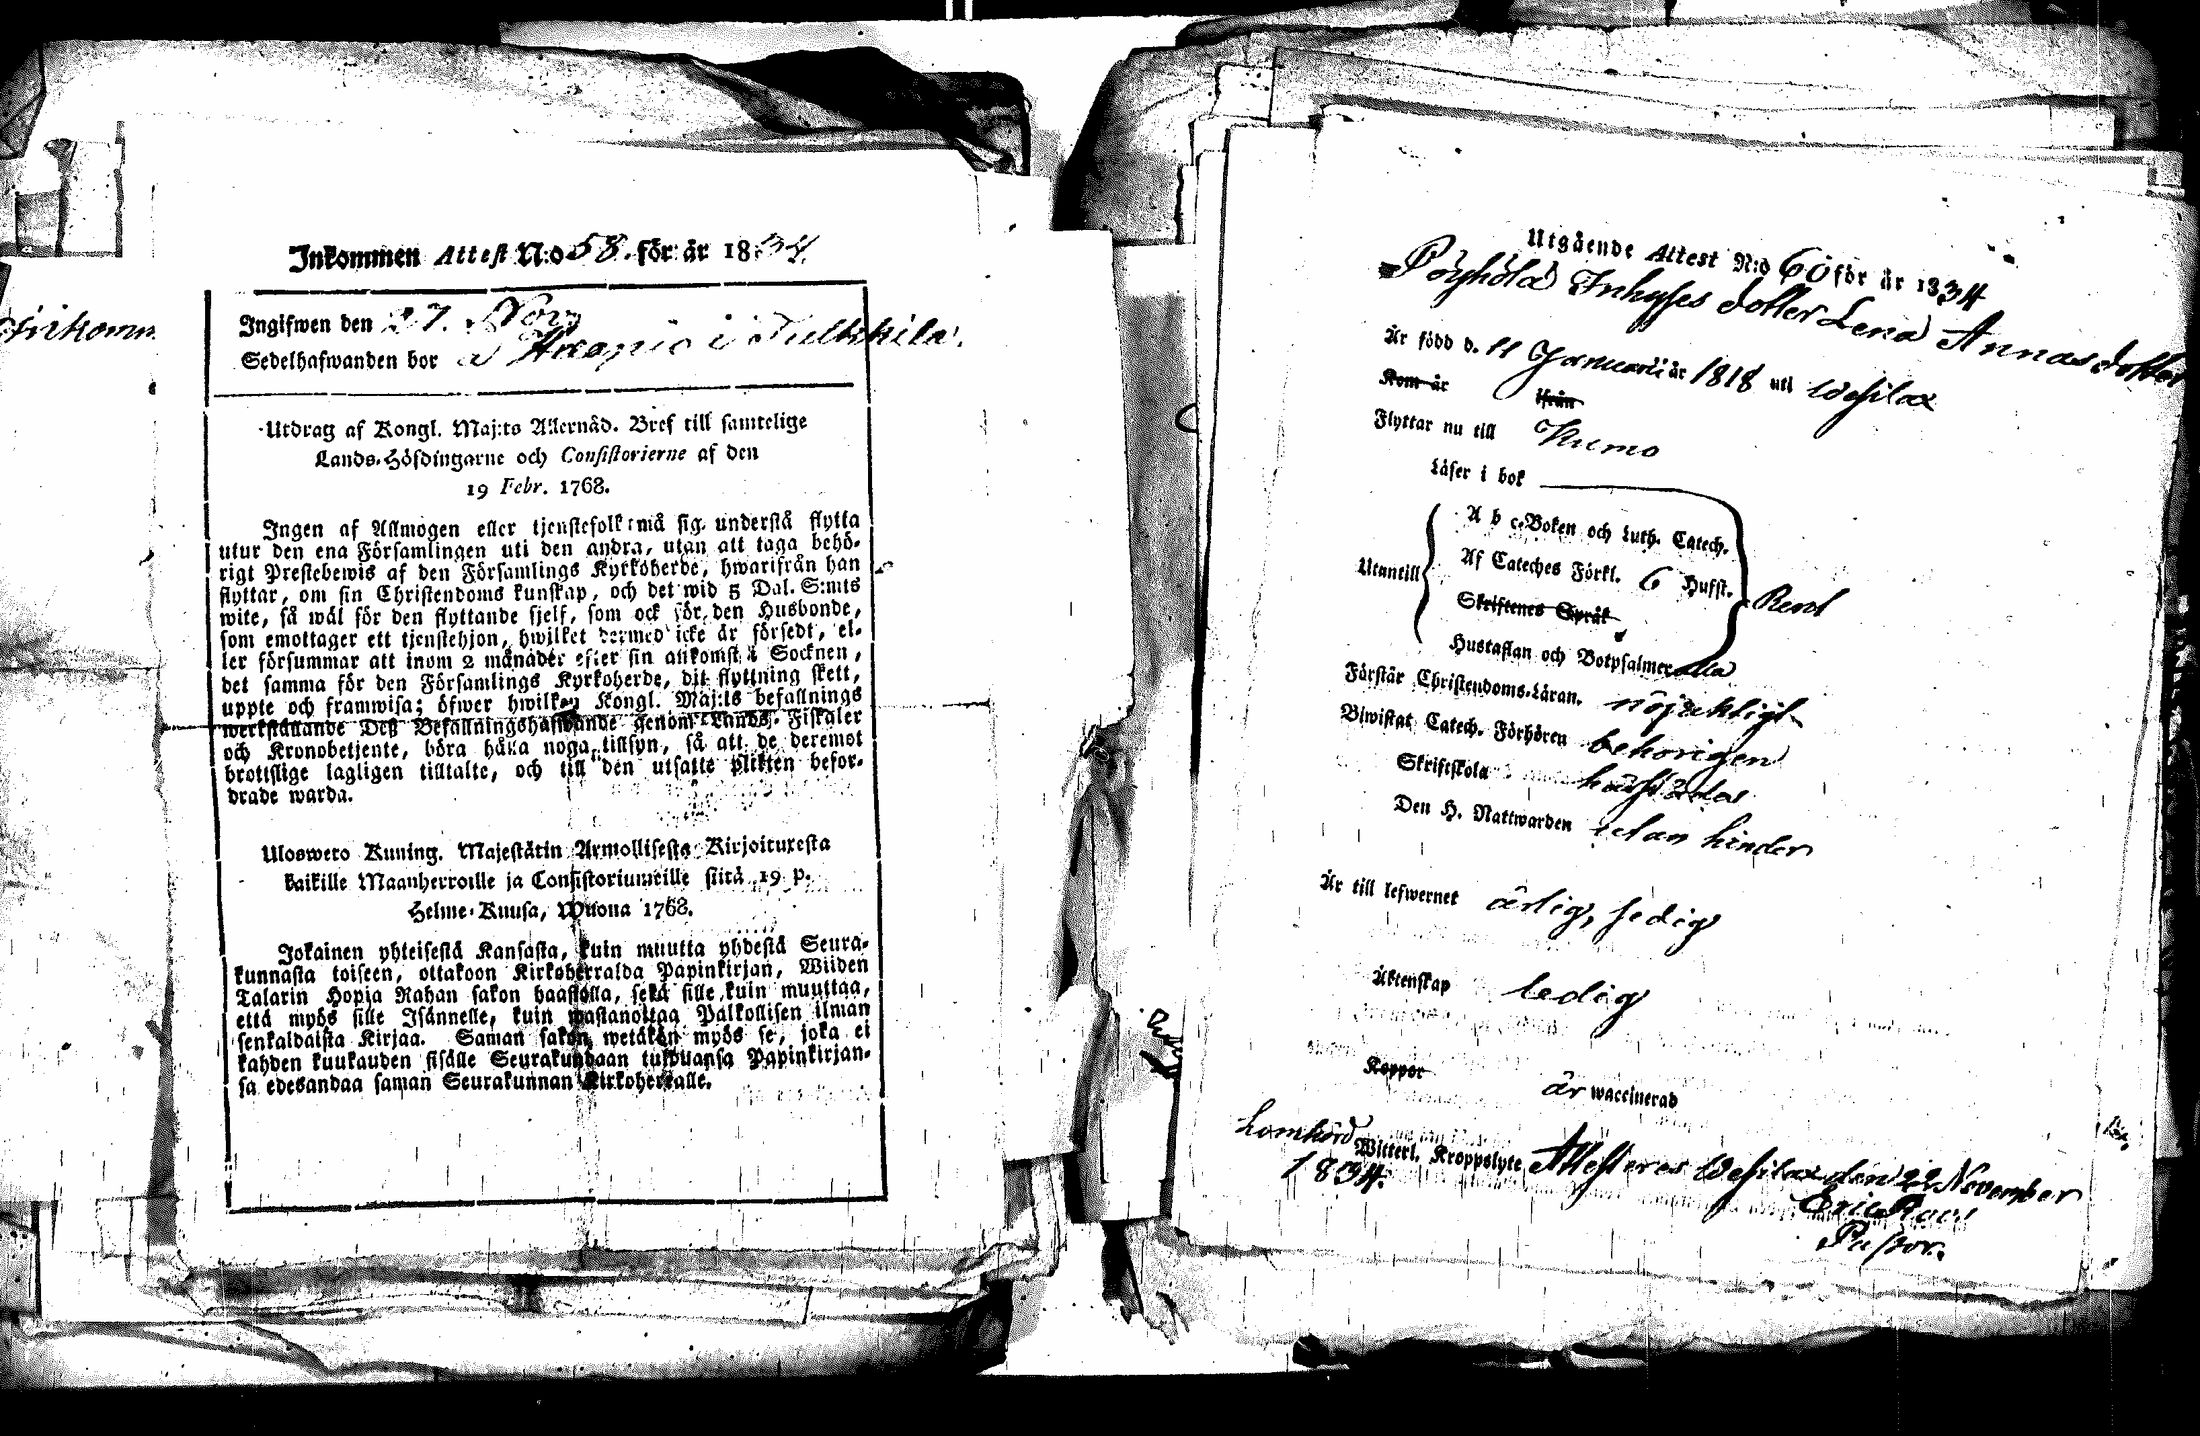 Inkommen Attest N:o 58. för år 1834.
Ingifwen den 27. Nov
Sedelhafwanden bor å Anopio i Tulkkila.
Utdrag af Kongl. Maj:ts Allernåd. Bref till samtelige
Lands-Höfdingarne och Consistorierne af den
19 Febr. 1768.
Ingen af Allmogen eller tjenstefolk må sig understå flytta
utur den ena Församlingen uti den andra, utan att taga behö-
rigt Prestebewis af den Församlings Kyrkoherde, hwarifrån han
flyttar, om sin Christendoms kunskap, och det wid 5 Dal. S:mts
wite, så wäl för den flyttande sjelf, som ock för den Husbonde,
som emottager ett tjenstehjon, hwilket dermed icke är försedt, el-
ler försummar att inom 2 månader efter sin ankomst i Socknen,
det samma för den Församlings Kyrkoherde, dit flyttning skett,
uppte och framwisa; öfwer hwilken Kongl. Maj:ts befallnings
werkställande Deß Befallningshafwande genom Lands-Fiskaler
och Kronobetjente, böra hålla noga tillsyn, så att de deremot
brottslige lagligen tilltalte, och till den utsatte plikten befor-
drade warda.
Ulosweto Kuning. Majestätin Armollisesta Kirjoituxesta
kaikille Maanherroille ja Consistoriumeille siitä 19 p.
Helme-Kuusa, Wuona 1768.
Jokainen yhteisestä Kansasta, kuin muutta yhdestä Seura-
kunnasta toiseen, ottakoon Kirkoherralda Papinkirjan, Wiiden
Talarin Hopja Rahan sakon haastolla, sekä sille kuin muuttaa,
että myös sille Isännelle, kuin wastanottaa Palkollisen ilman
senkaldaista Kirjaa. Saman sakon wetäkön myös se, joka ei
kahden kuukauden sisälle Seurakundaan tultuansa Papinkirjan-
sa edesandaa saman Seurakunnan Kirkoherralle.
Utgående Attest N:o 60 för år 1834
Pöyhölä Inhyses dotter Lena Annasdotter
Är född d. 11 Januarii år 1818 uti Wesilax
Kom år ifrån
Flyttar nu till Kumo
Läser i bok
A b c-Boken och Luth. Catech.
Utantill Af Cateches Förkl. 6 Hufst. Rent
Skriftenes Språk
Hustaflan och Botpsalmer alla
Förstår Christendoms-Läran. nöjaktigt
Biwistat Catech. Förhören behörigen
Skriftskola
Den H. Nattwarden utan hinder
Är till lefwernet ärlig, sedig
Äktenskap ledig
Koppor är waccinerad
Witterl. Kroppslyte Attesteres Wesilax den 22 November
1834.
Eric
Pastor.